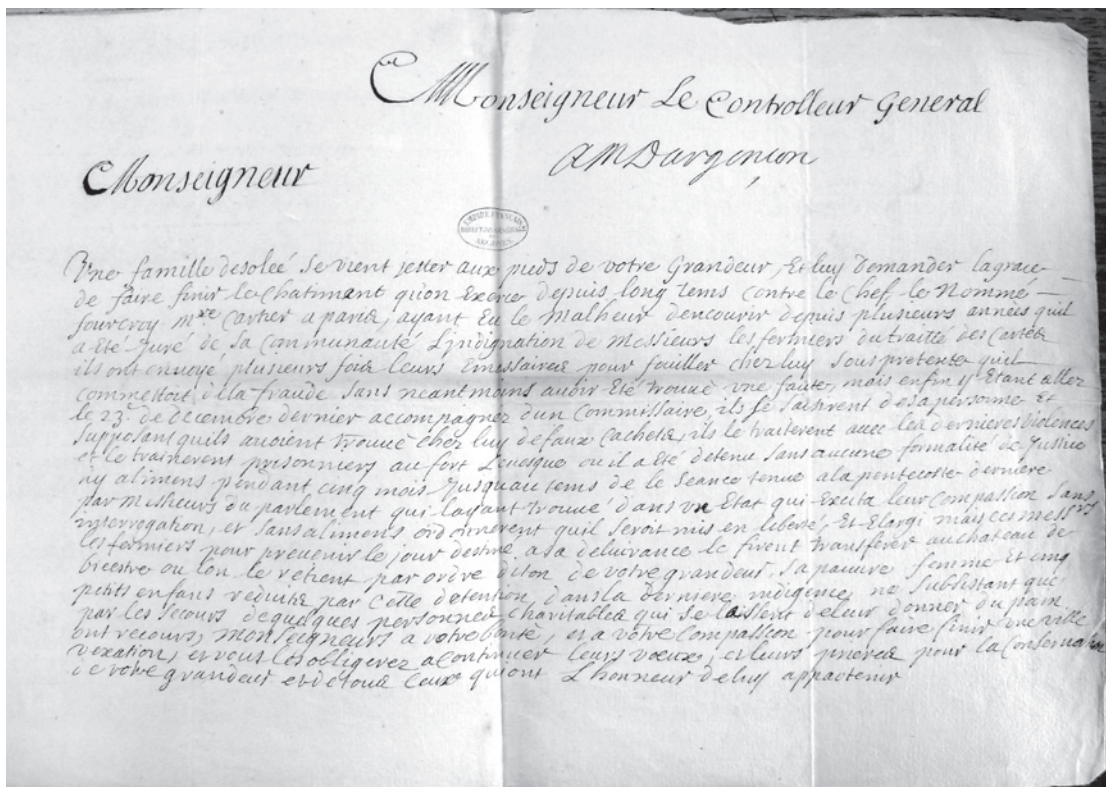 Monseigneur Le Controlleur General
AM Dargençon
Monseigneur
EMPIRE FRANÇAIS
ARCHIVES
Une famille desoleé se vient jetter aux pieds de votre Grandeur, Et luy Demander la grace
de faire finir le Chatimant qu'on Exerce depuis long tems contre le Chef, le Nommé
fourcroy Mre Cartier a paris, ayant Eu le Malheur dencourir depuis plusieurs années quil
a Eté juré de sa Communauté L'indignation de Messieurs les fermiers du traitté des Cartes
ils ont envoyé plusieurs fois leurs Emissaires pour fouiller chez luy sous pretexte quil
commettoit de la fraude sans neantmoins avoir Eté trouvé vne faute, mais enfin y Etant allez
le 23e. de decembre dernier accompagnez dun Commissaire, ils se saisirent de sa personne et
supposant quils avoient trouvé chez luy de faux Cachets, ils le traiterent avec les dernieres violences
et le trainerent prisonniers au fort Levesque ou il a Eté detenu sans aucune formalité de Justice
ny alimens pendant cinq mois Jusqu'au tems de le seance tenue a la pentecoste derniere
par Messieurs du parlement qui layant trouvé dans vn Etat qui Excita leur Compassion sans
interrogation, et sans aliments, ordonnerent quil seroit mis en liberté, et Elargi mais ces messrs
les fermiers pour prevenir le jour destiné a sa delivrance le firent transferer au chateau de
bicestre ou lon le retient par ordre diton de votre grandeur. Sa pauvre femme et cinq
petits enfans reduits par cette detention dans la Derniere indigence ne Subsistant que
par les secours de quelques personnes charitables qui se lassent de leur donner du pain
ont recours, Monseigneurs a votre bonté, et a votre Compassion pour faire finir une ville
vexation, et vous les obligerez a Continuer leurs vœux, et leurs prieres pour la Conservation
de votre grandeur et de tous Ceux qui ont L'honneur de luy appartenir